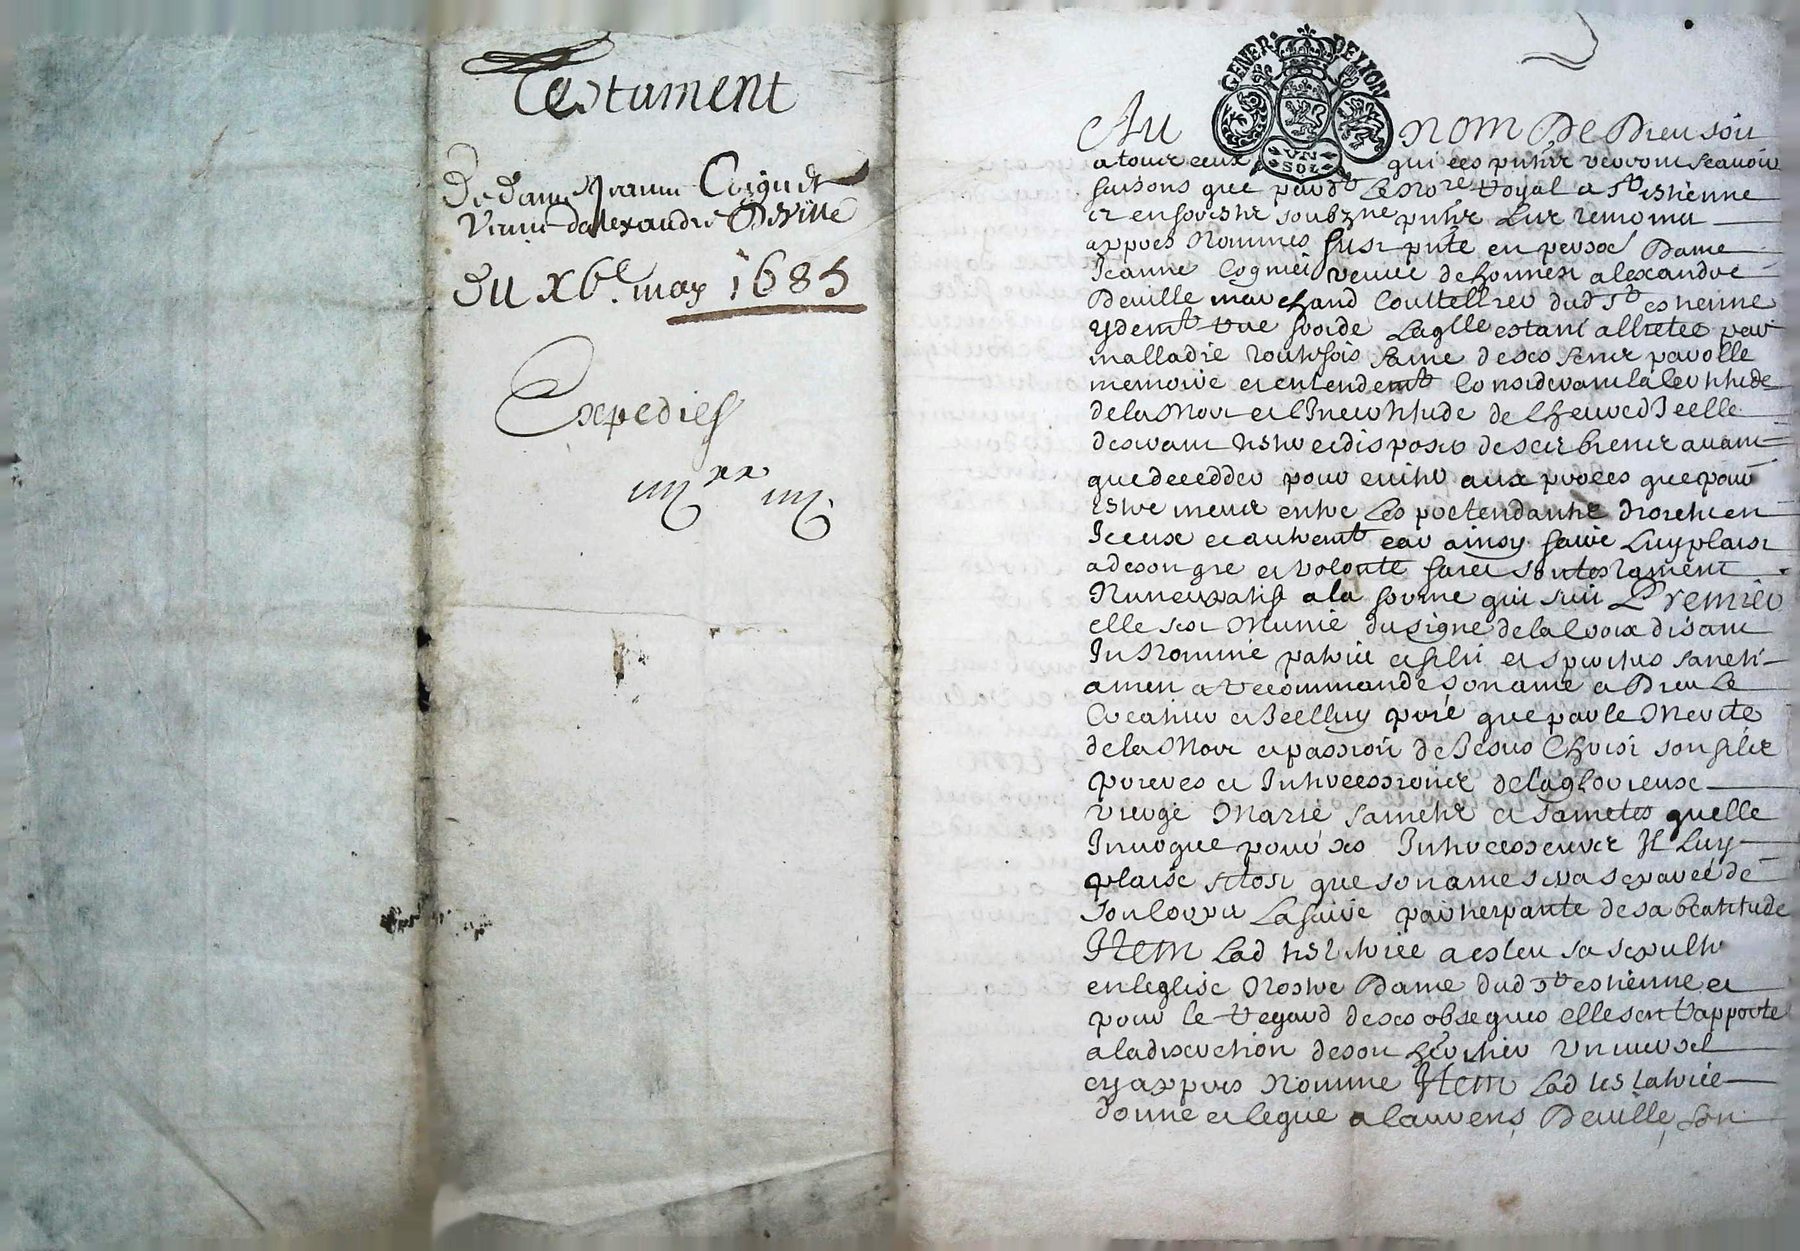 Testament
De dame Jeanne Coignet
Veuve dalexandre Deville
Du xbe. may 1685
Expedies
iiijxx iiij
GENER. DE LION
UN
SOL
Au nom De Dieu soit
a tous ceux qui ces pntes verront scavoir
faisons que pardt Le Nore Royal a St Estienne
et en forestz soubzne pntz Les temoins
appres Nommes fust pnte en persoe Dame
Jeanne Cognet veuve de honneste alexandre
Deville marchand Couttellier dud St estienne
malladie toutesfois saine de ses sens parolle
memoire et entendemt Considerant la Certitude
de la Mort et lIncertitude de Lheure dIcelle
desirant tester et disposer de ses biens avant
que decedder pour eviter aux proces que pourroit
estre meus entre Les pretendantz droictz en
Iceux et autremt car ainsy faire Luy plaist
a de son gre et volonte faict son testament
Nuncupatif a la forme qui suit Premier
elle sest Munie du signe de la Croix disant
In Nomine patris et filii et spiritus sancti
amen a recommande son ame a Dieu Le
Createur et Icelluy prié que par le Merite
de la Mort et passion de Jesus Christ son filz
prieres et Intercessions de la glorieuse
Vierge Marie saintz et saintes quelle
Invoque pour ses Intercesseurs Il Luy
plaise sitost que son ame sera separée de
son Corps La faire participante de sa beatitude
Item Lad testatrice a esleu sa sepulture
en leglise Nostre Dame dud St estienne et
pour le Regard de ses obseques elle sen rapporte
a la discretion de son heritier universel
cy appres Nomme Item Lad testatrice
donne et legue a laurens Deville son